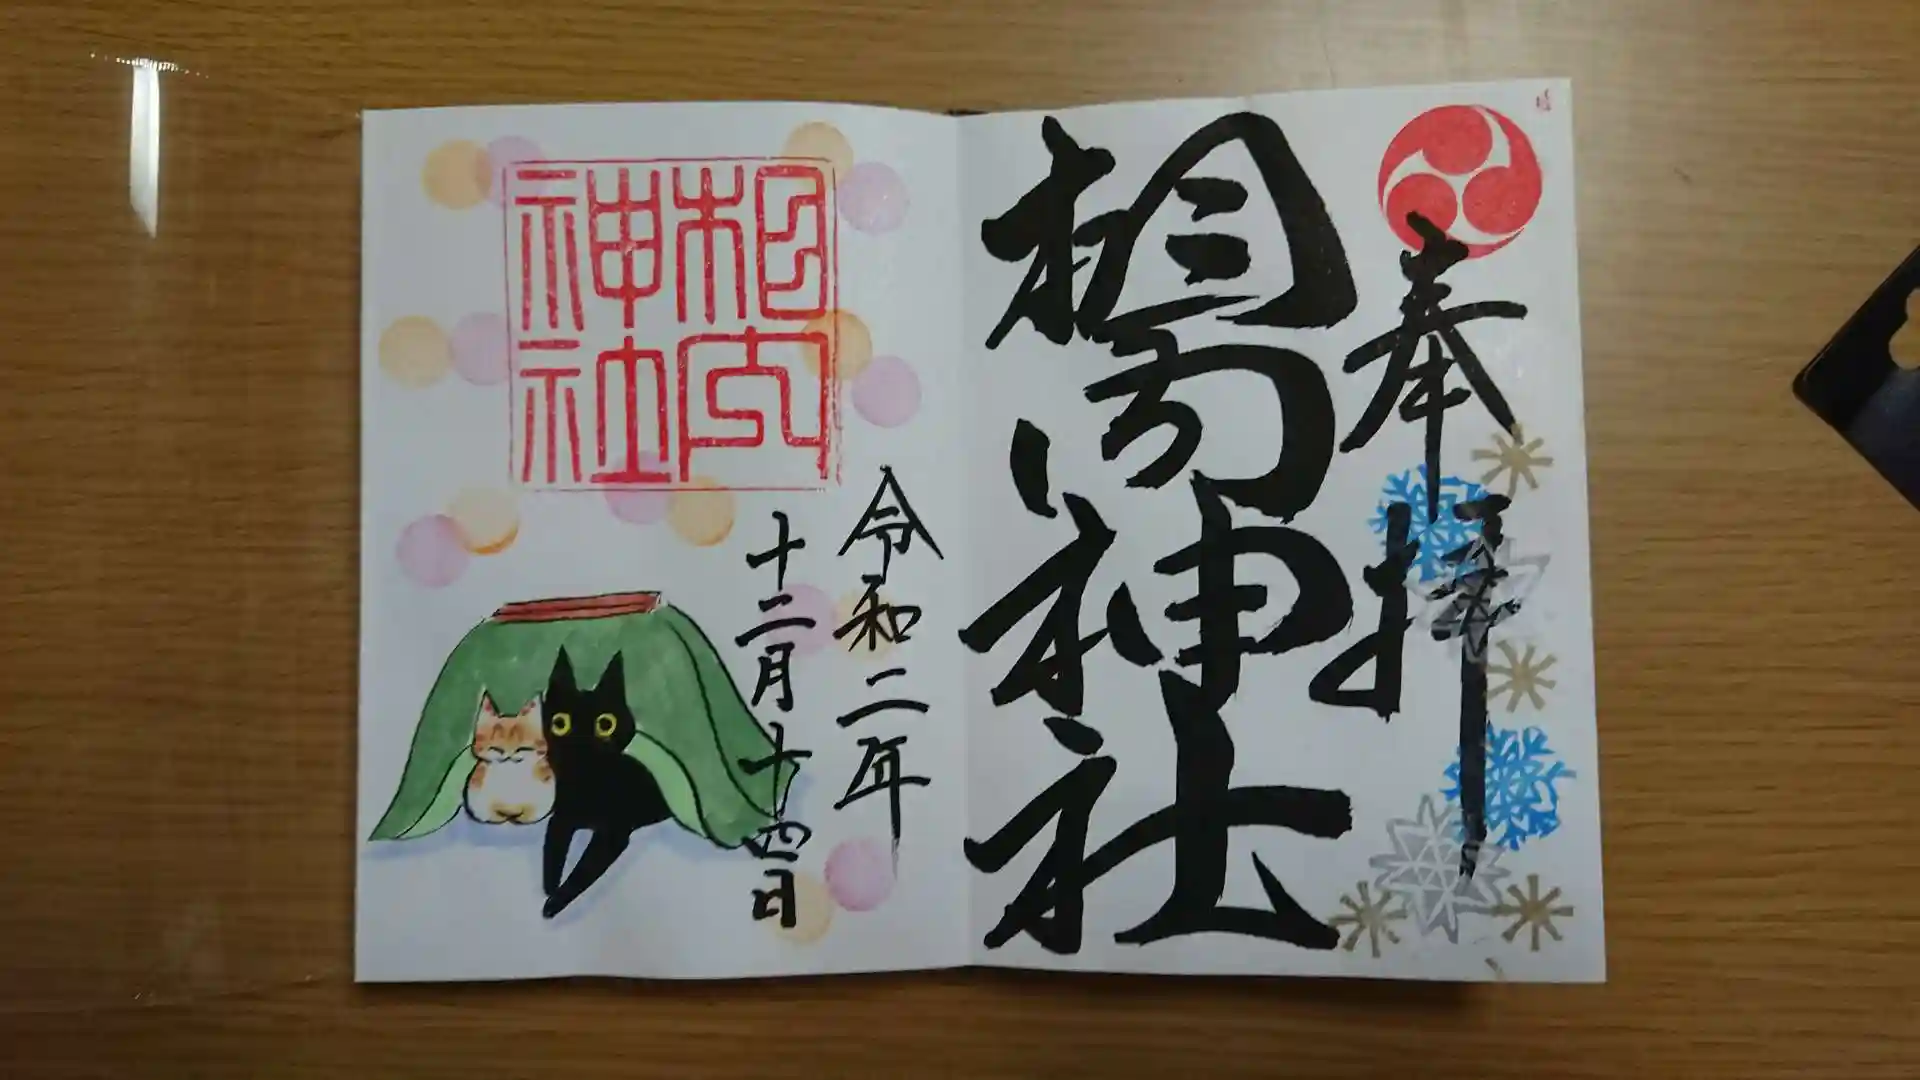 奉拝
相内神社
令和二年
十二月十四日
相内
神社